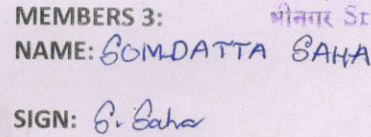 MEMBERS 3:
श्रीनगर Sr
NAME: SOMDATTA SAHA
SIGN: S. Saha